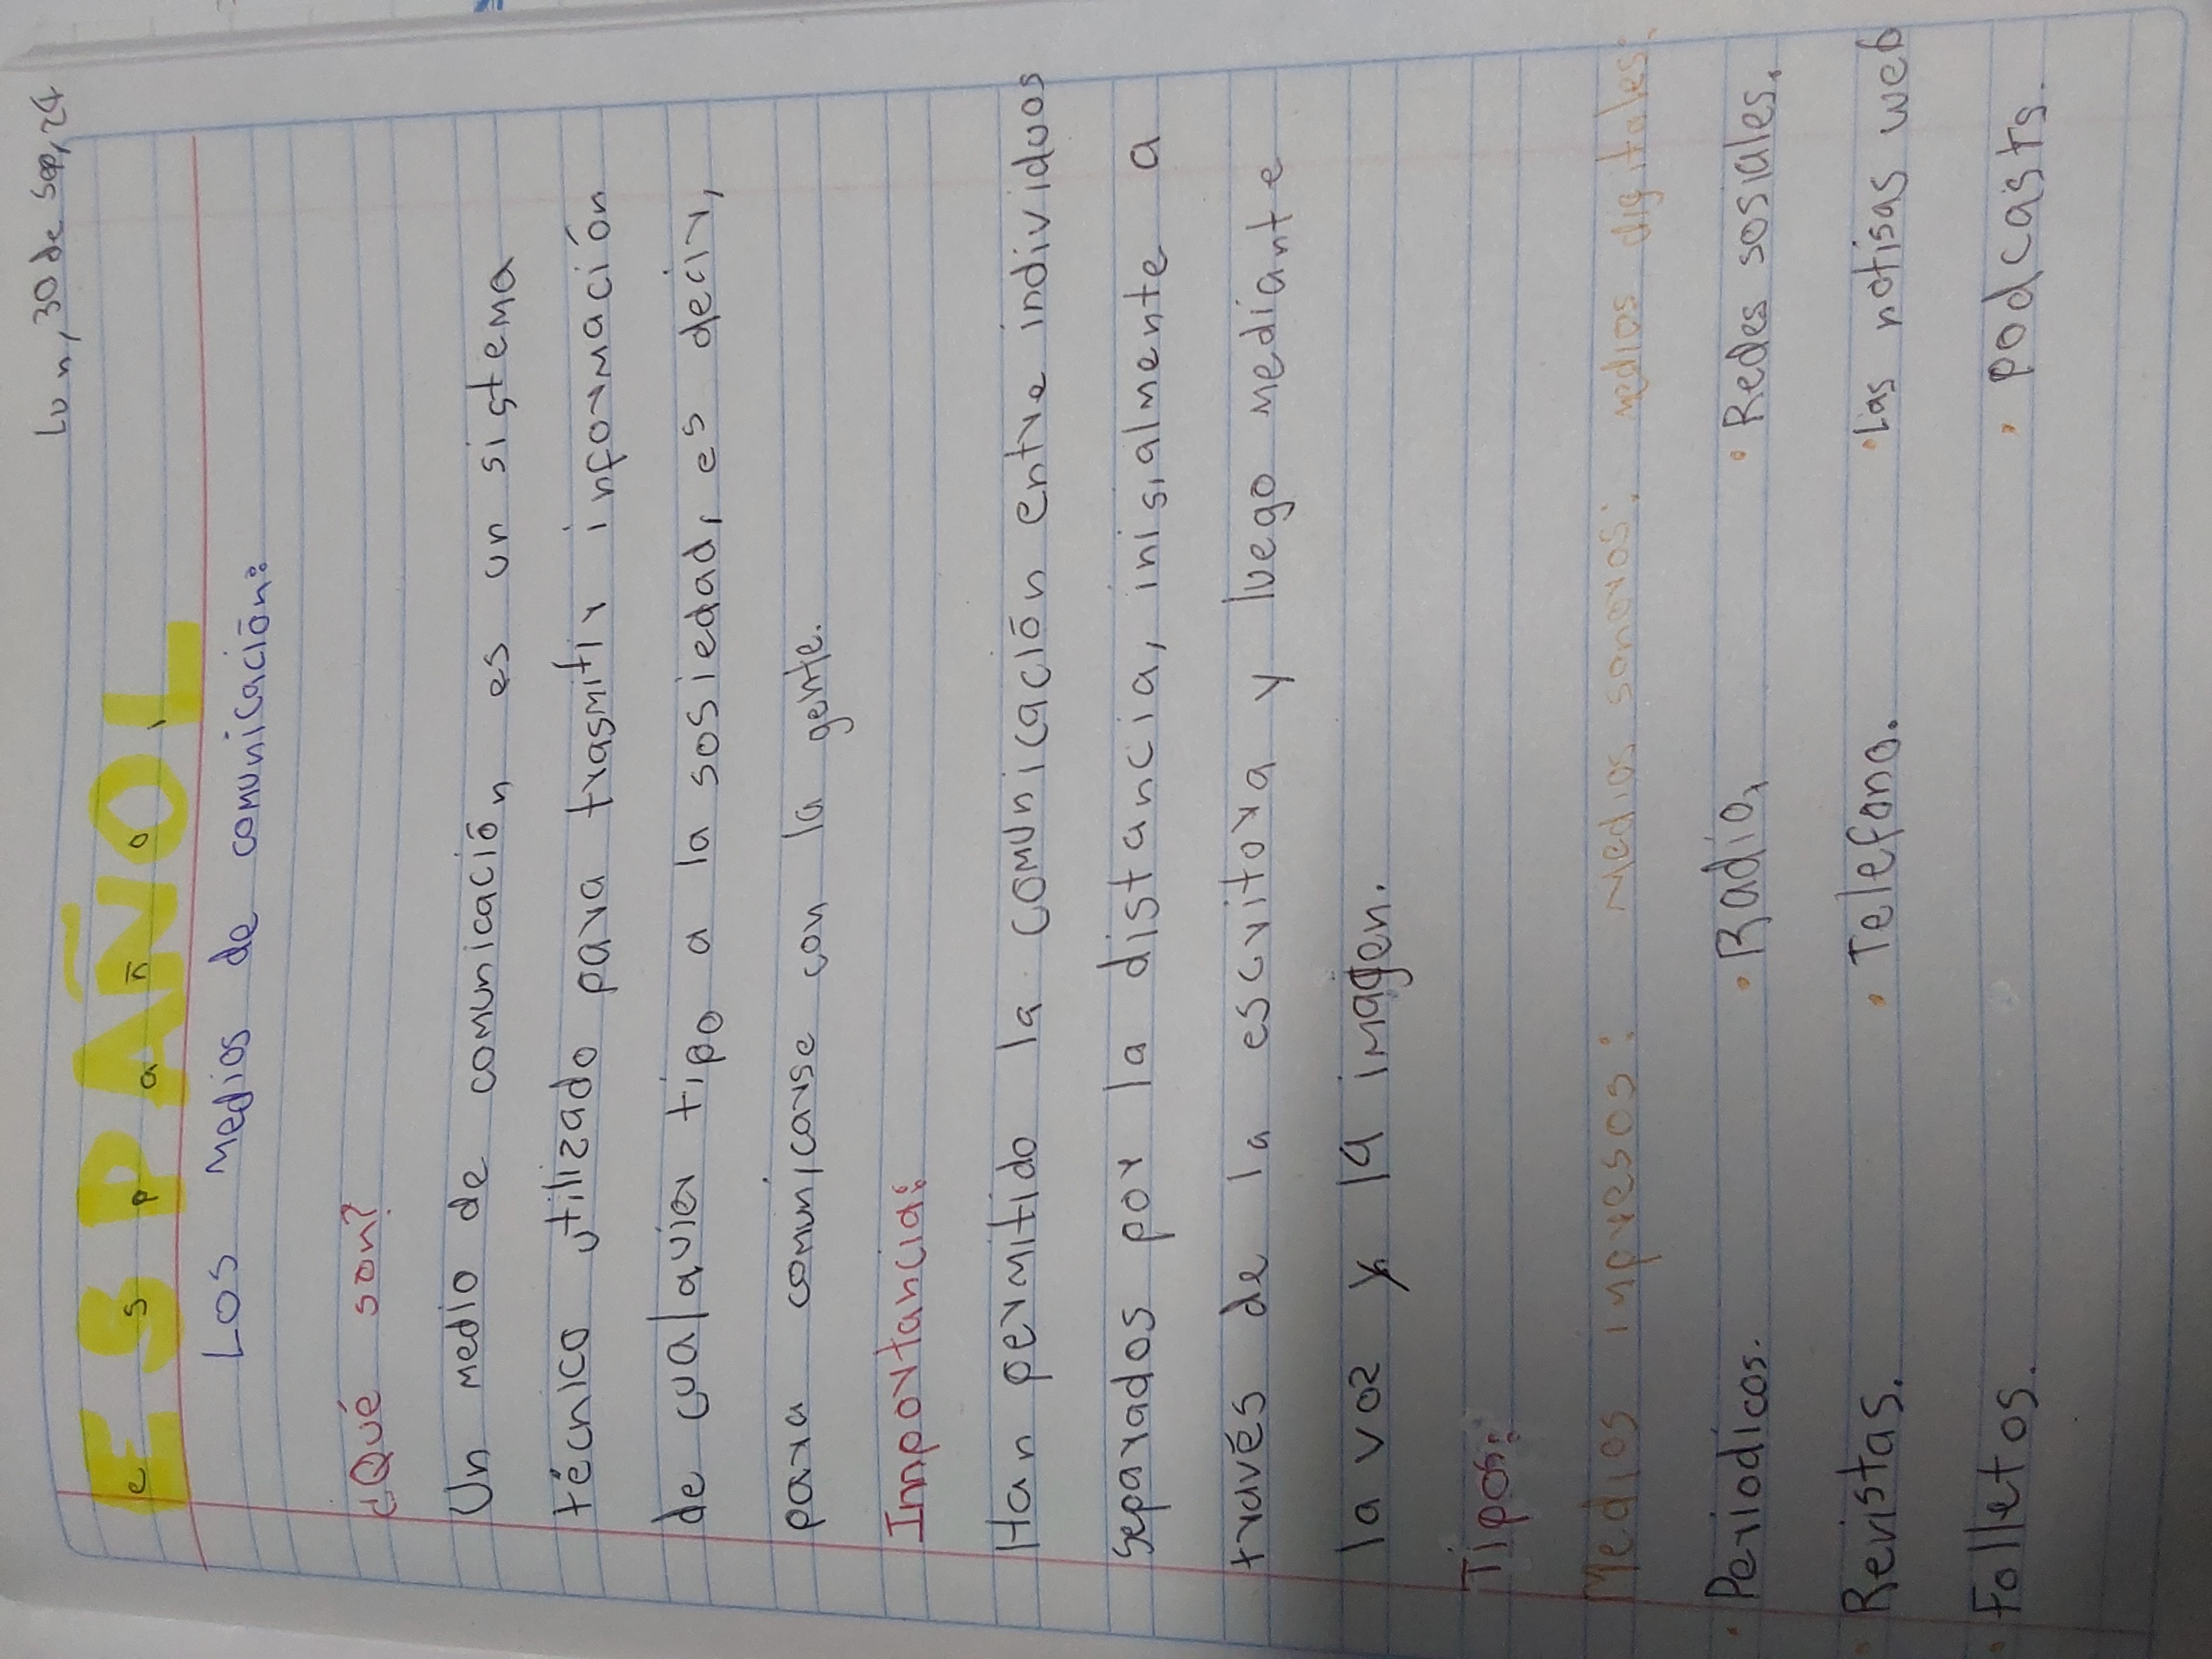 Lun, 30 de sep, 24
ESPAÑOL
e s p a ñ o l
Los medios de comunicación:
¿Qué son?
Un medio de comunicación es un sistema
técnico utilizado para trasmitir información
de cualquier tipo a la sosiedad, es decir,
para comunicarse con la gente.
Importancia:
Han permitido la comunicación entre individuos
separados por la distancia, inisialmente a
través de la escritora y luego mediante
la voz y la imagen.
Tipos:
Medios impresos: Medios sonoros: medios digitales:
• Periodicos. • Radio, • Redes sosiales.
• Revistas. • Telefono. • Las notisas web
• Folletos. • podcasts.